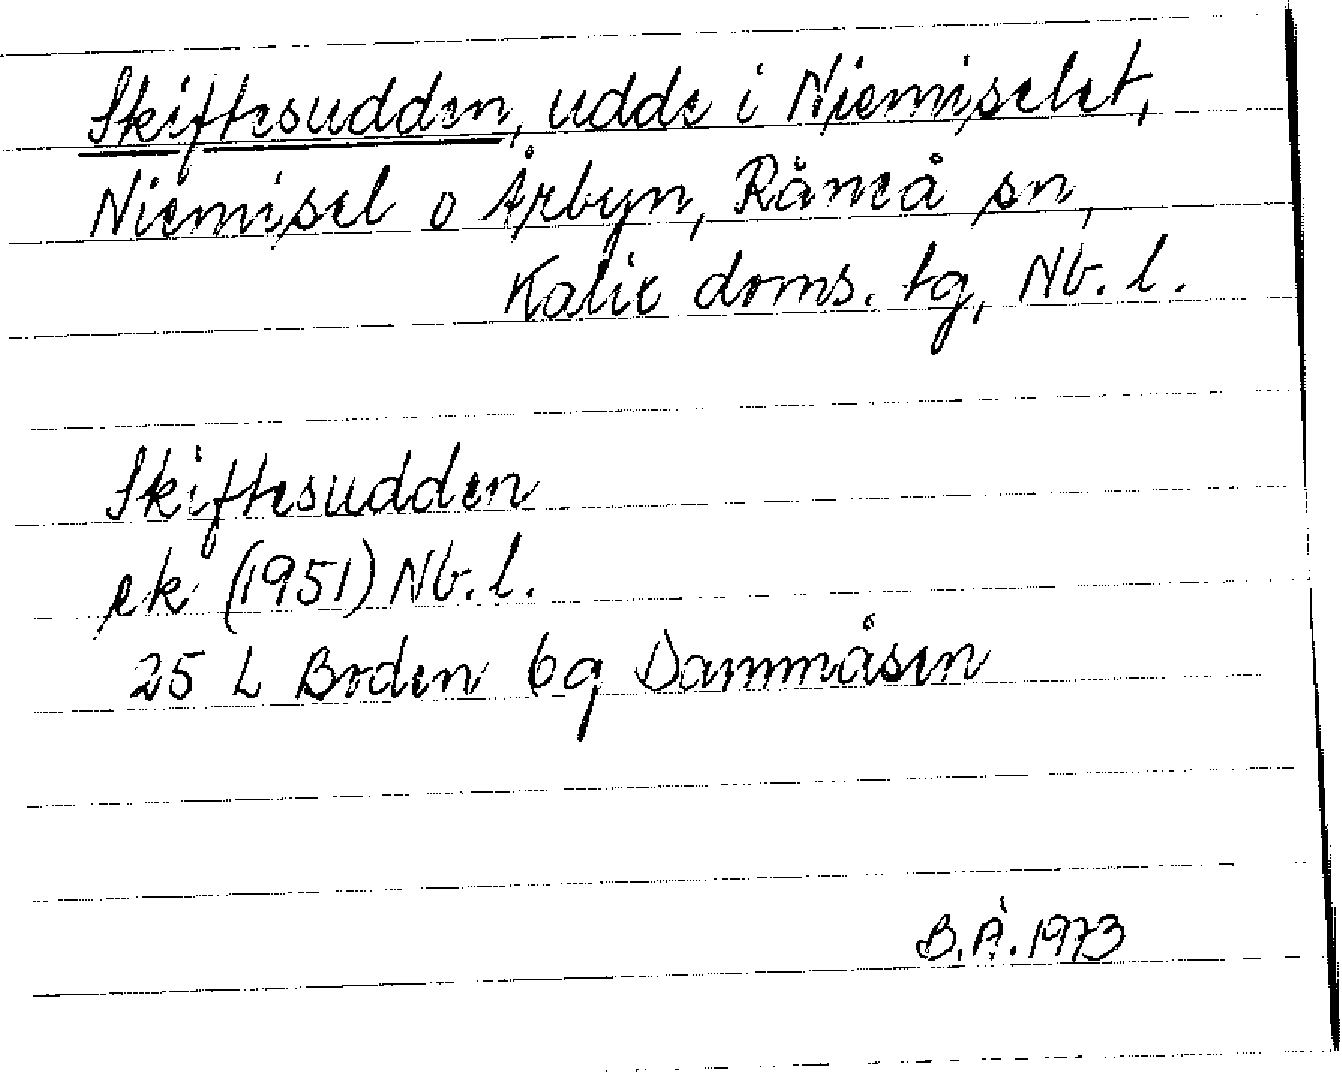 Skiftesudden, udde i Niemiselet,
Niemisel o Årbyn, Råneå sn,
Kalix doms. tg, Nb. l.
Skiftesudden
ek (1951) Nb. l.
25 L Boden 6g Dammåsen
B.Å. 1973